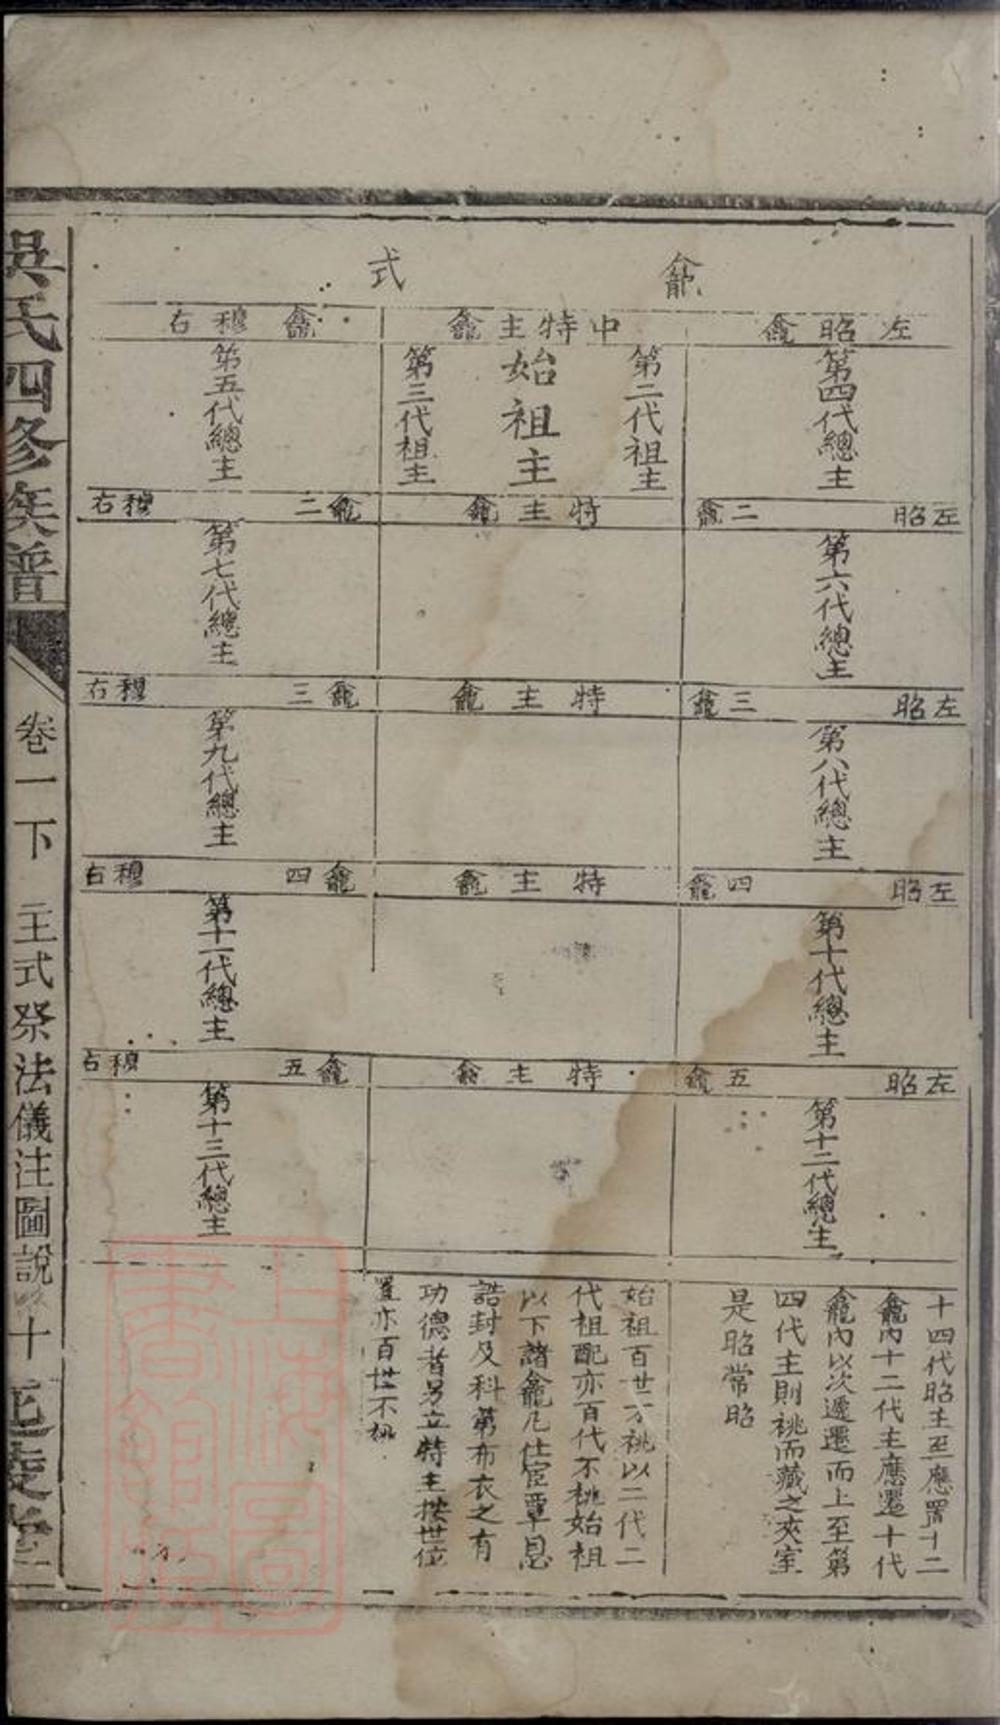 龕式
左昭龕
中特主龕
龕穆右
第四代總主
第二代祖主
始祖主
第三代祖主
第五代總主
左昭二龕
特主龕
龕二穆右
第六代總主
第七代總主
左昭三龕
特主龕
龕三穆右
第八代總主
第九代總主
左昭四龕
特主龕
龕四穆右
第十代總主
第十一代總主
左昭五龕
特主龕
龕五穆右
第十二代總主
第十三代總主
十四代昭主至應置十二
龕內十二代主應遷十代
龕內以次遞遷而上至第
四代主則祧而藏之夾室
是昭常昭
始祖百世不祧以二代三
代祖配亦百代不祧始祖
以下諸龕凡仕宦覃恩
誥封及科第布衣之有
功德者另立特主按世位
置亦百世不祧
吳氏四修族譜
卷一下
主式祭法儀注圖說
十
上海圖書館藏